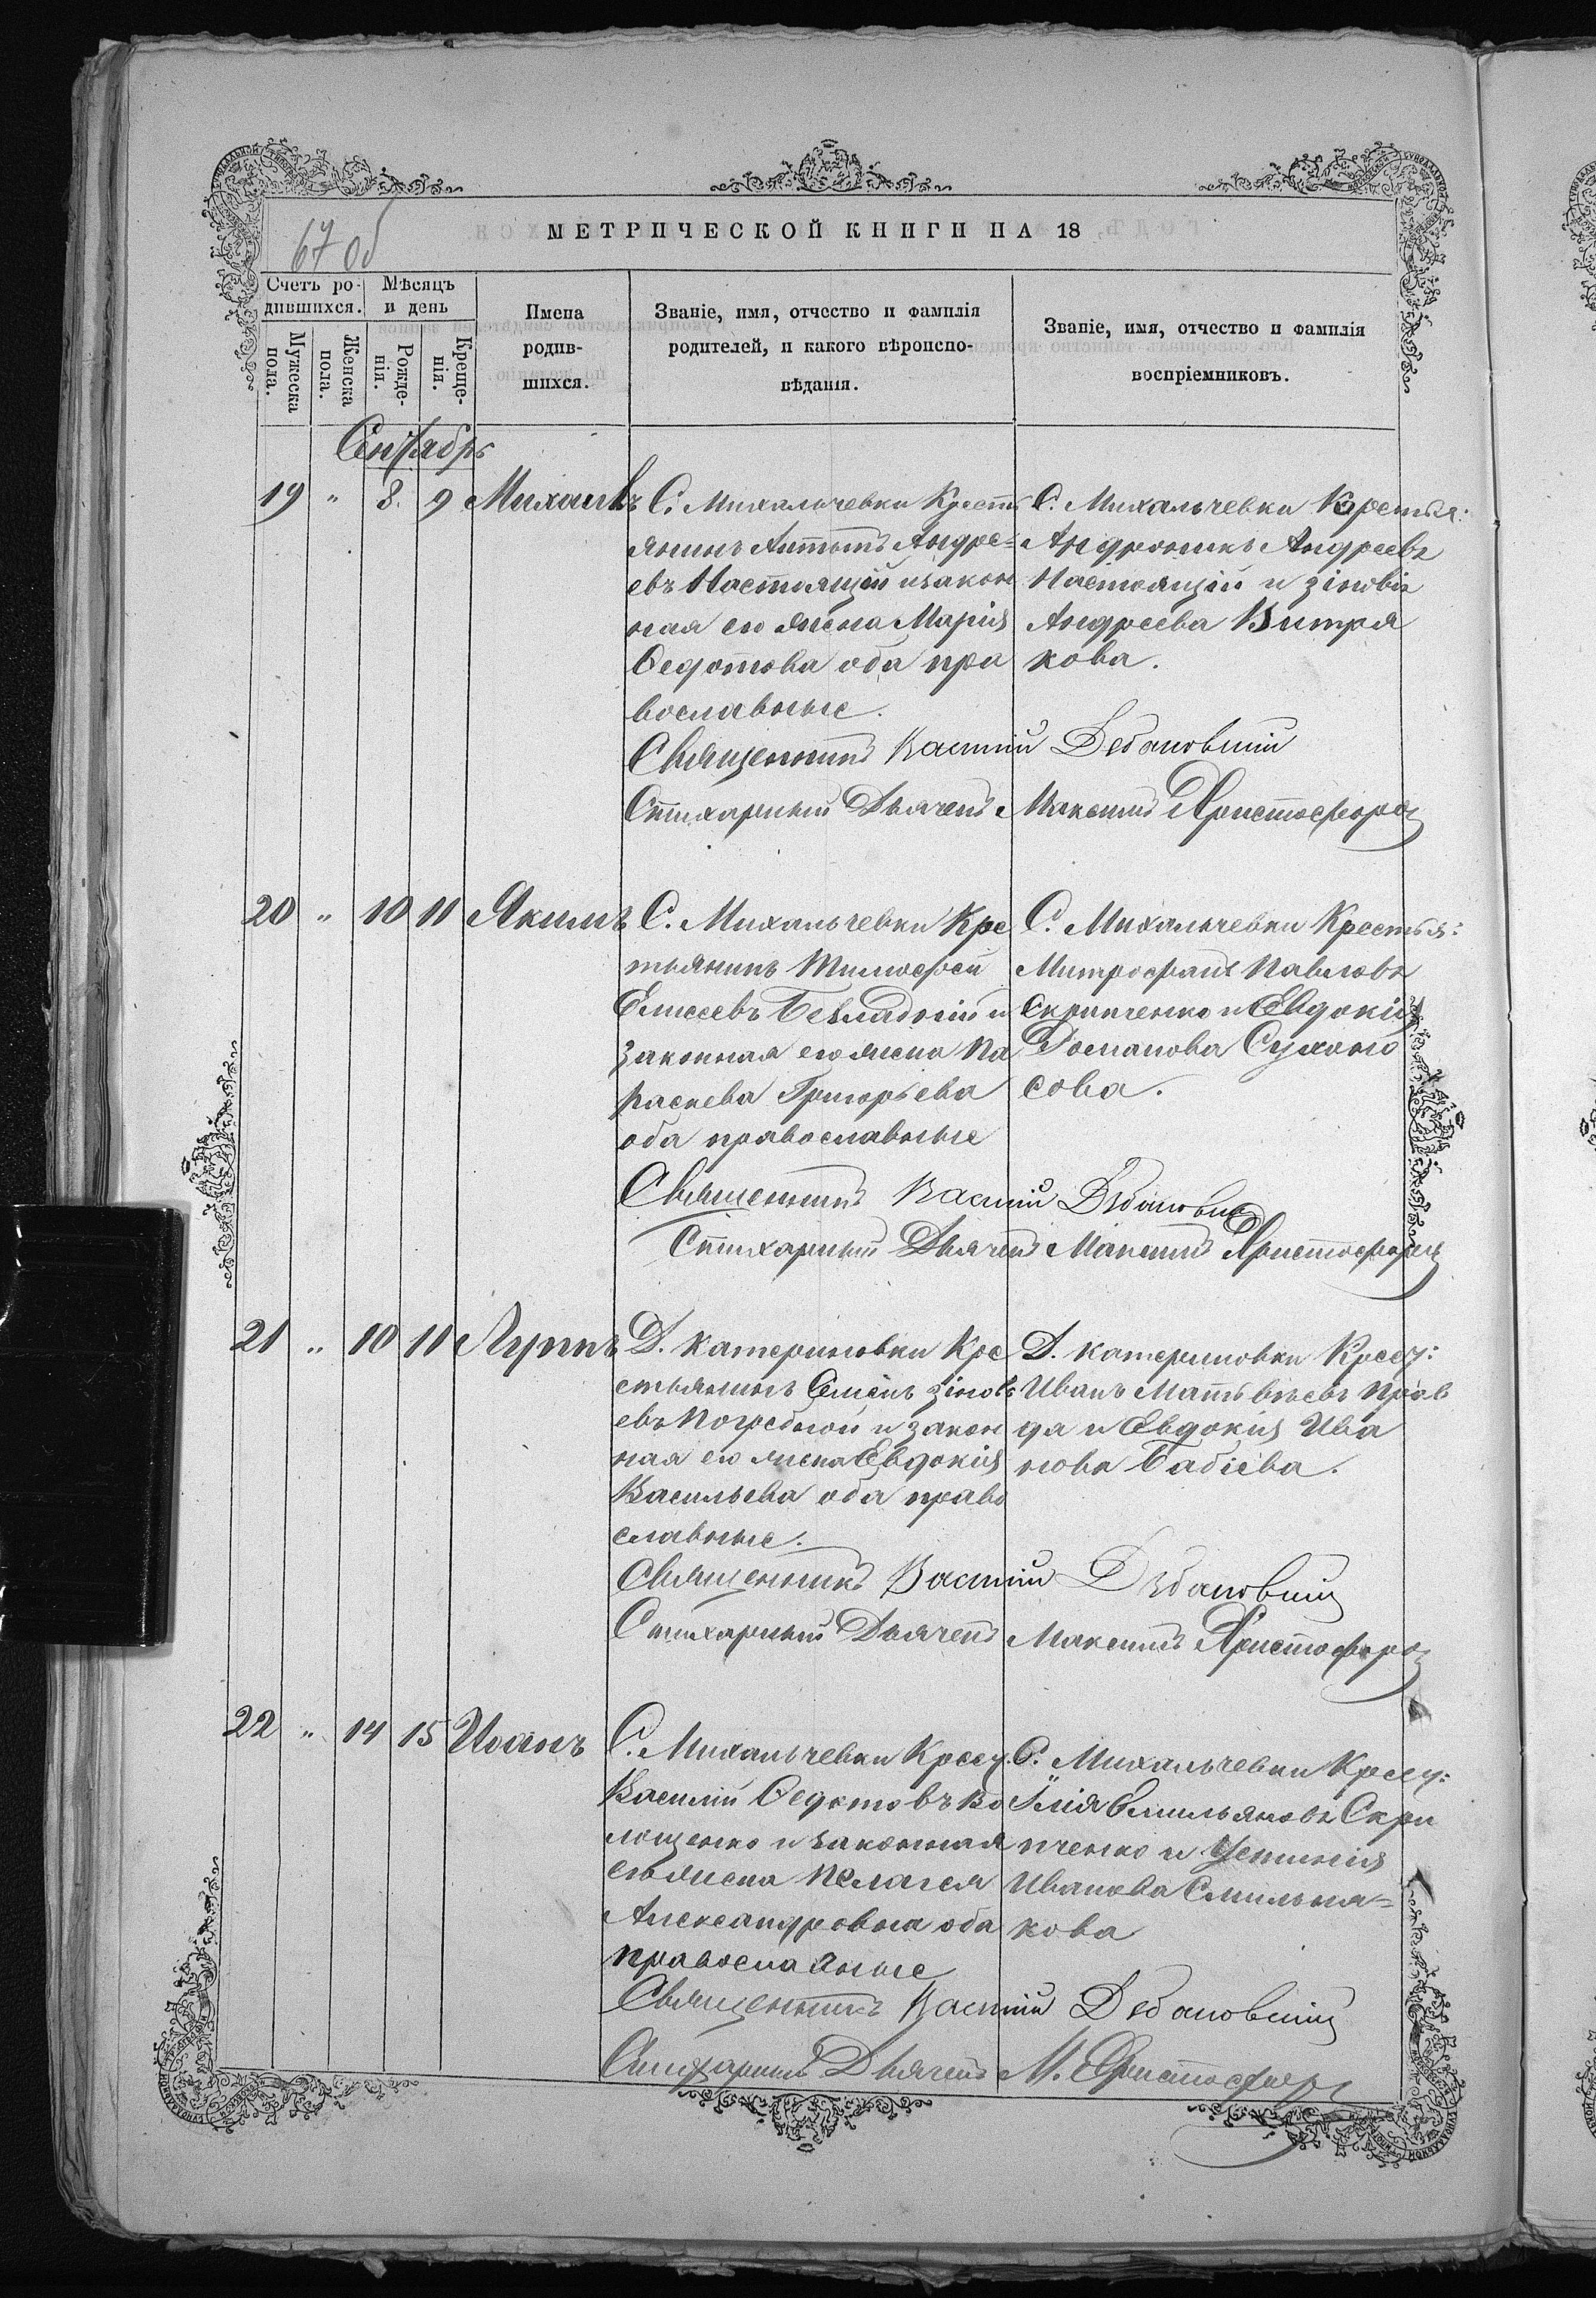 67 об
МЕТРИЧЕСКОЙ КНИГИ НА 18
Счетъ ро-
дившихся.
Мѣсяцъ
и день
Мужеска
пола.
Женска
пола.
Рожде-
нія.
Креще-
нія.
Имена
родив-
шихся.
Званіе, имя, отчество и фамилія
родителей, и какого вѣроиспо-
вѣданія.
Званіе, имя, отчество и фамилія
воспріемниковъ.
Сентябрь
19 " 8. 9 Михаилъ
С. Михальчевки Крестья
янинъ Антонъ Андре=
евъ Настоящій и закон
ная его жена Марія
Ѳедотова оба пра
вославные.
С. Михальчевки Крестья:
Андроникъ Андреевъ
Настоящій и Зіновія
Андреева Витря
кова.
Священникъ Василій Дебановскій
Стихарный Дьячекъ Максимъ Христофоров
20 " 10 11 Якимъ
С. Михальчевки Кре
тьянинъ Тимофей
Елисеевъ Безладній и
законная его жена Па
раскева Григорьева
оба православные
С. Михальчевки Крестья:
Митрофанъ Павловъ
Скрипченко и Евдокія
Романова Сухоно
сова.
Священникъ Василій
Стихарный Дьячекъ Максимъ Христофоров
21 " 10 11 Луппъ
Д. Катериновки Кре
стьянинъ Семенъ Зіновь
евъ Погребной и закон
ная его жена Евдокія
Васильева оба право
славные.
Д. Катериновки Крест:
Иванъ Матвѣевъ Прав
да и Евдокія Ива
нова Бабіева.
Священникъ Василій Дебановскій
Стихарный Дьячекъ Максимъ Христофоров
22 " 14 15 Иванъ
С. Михальчевки Крест.
Василій Ѳедотовъ Во
лощенко и законная
его жена Пелагея
Александровна оба
православные
С. Михальчевки Крест:
Ілія Емильяновъ Скри
пченко и Устинія
Иванова Смильня=
кова
Священникъ Василій Дебановскій
Стихарный Дьячекъ М. Христофоров